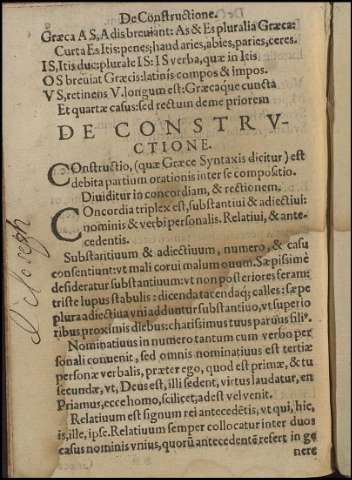 De Constructione.
Græca A S, A dis breuiant: As & Es pluralia Græca:
Curta Es Itis: penes; haud aries, abies, paries, ceres.
IS, Itis duc: plurale IS: IS verba, quæ in Itis
OS breuiat Græcis: latinis compos & impos.
VS, retinens V. longum est: Græcaque cuncta
Et quartæ casus: sed rectum deme priorem
DE CONSTRV-
CTIONE.
COnstructio, (quæ Græce Syntaxis dicitur) est
debita partium orationis inter se compositio.
Diuiditur in concordiam, & rectionem.
COncordia triplex est, substantiui & adiectiui:
nominis & verbi personalis. Relatiui, & ante-
cedentis.
Substantiuum & adiectiuum, numero, & casu
consentiunt: vt mali corui malum ouum. Sæpissime
desideratur substantiuum: vt non posteriores feram:
triste lupus stabulis: dicenda tacendaq; calles: sæpe
plura adiectiua vni adduntur substantiuo, vt superio
ribus proximis diebus: charissimus tuus paruus filiꝰ.
Nominatiuus in numero tantum cum verbo per
sonali conuenit, sed omnis nominatiuus est tertiæ
personæ verbalis, præter ego, quod est primæ, & tu
secundæ, vt, Deus est, illi sedent, virtus laudatur, en
Priamus, ecce homo, scilicet, adest vel venit.
Relatiuum est signum rei antecedẽtis, vt qui, hic,
is, ille, ipse. Relatiuum semper collocatur inter duos
casus nominis vnius, quorũ antecedentẽ refert in ge
nere